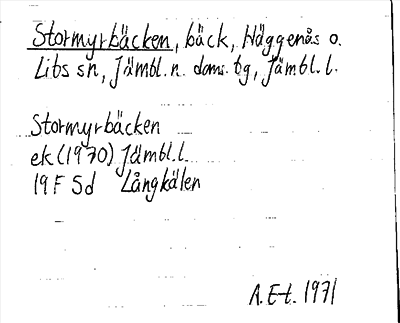 Stormyrbäcken, bäck, Häggenås o.
Lits sn, Jämtl. n. doms. bg, Jämtl. l.
Stormyrbäcken
ek (1970) Jämtl. l.
19F 5d Långkälen
A. E-t. 1971